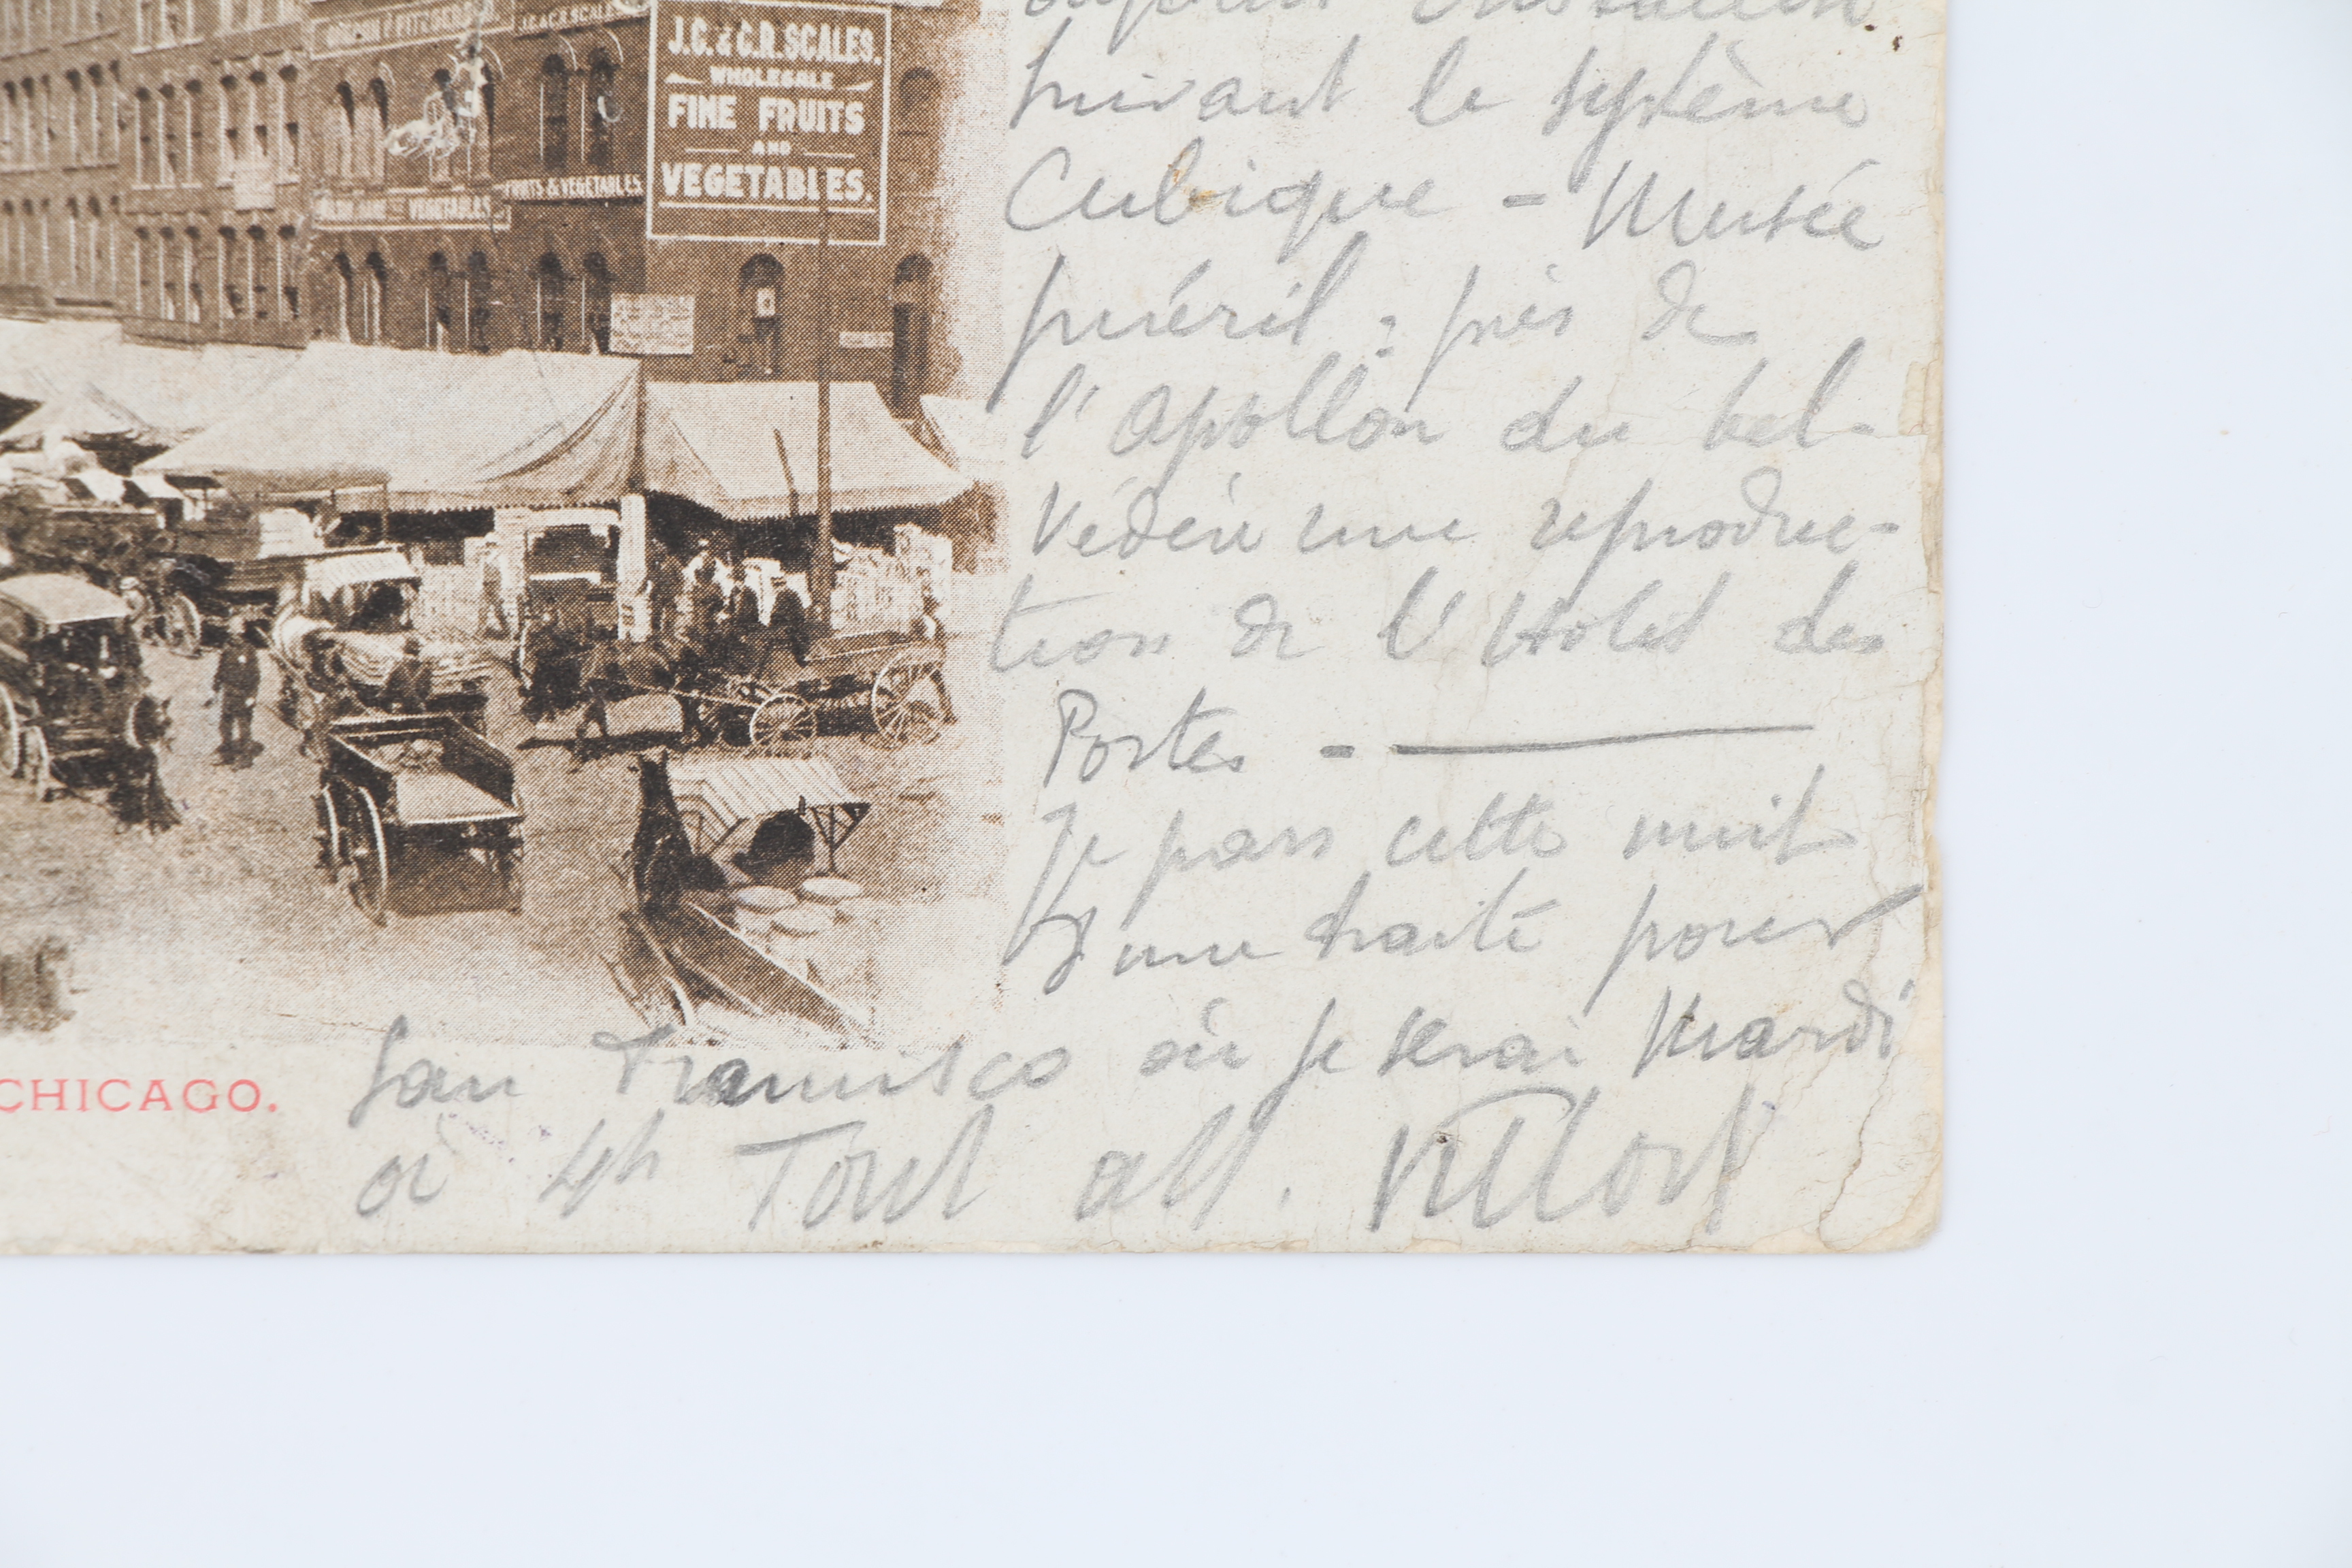 J.C. & C.R. SCALES.
WHOLESALE
FINE FRUITS
AND
VEGETABLES.
J.C. & C.R. SCALES
FRUITS & VEGETABLES
VEGETABLES
CHICAGO.
suivant le système
Cubique - Musée
puéril : près de
l'Apollon du bel-
védère une reproduc-
tion de l'Hotel des
Postes -
Je pars cette nuit
d'une traite pour
San Francisco où je serai Mardi
à 4h Tout aff.